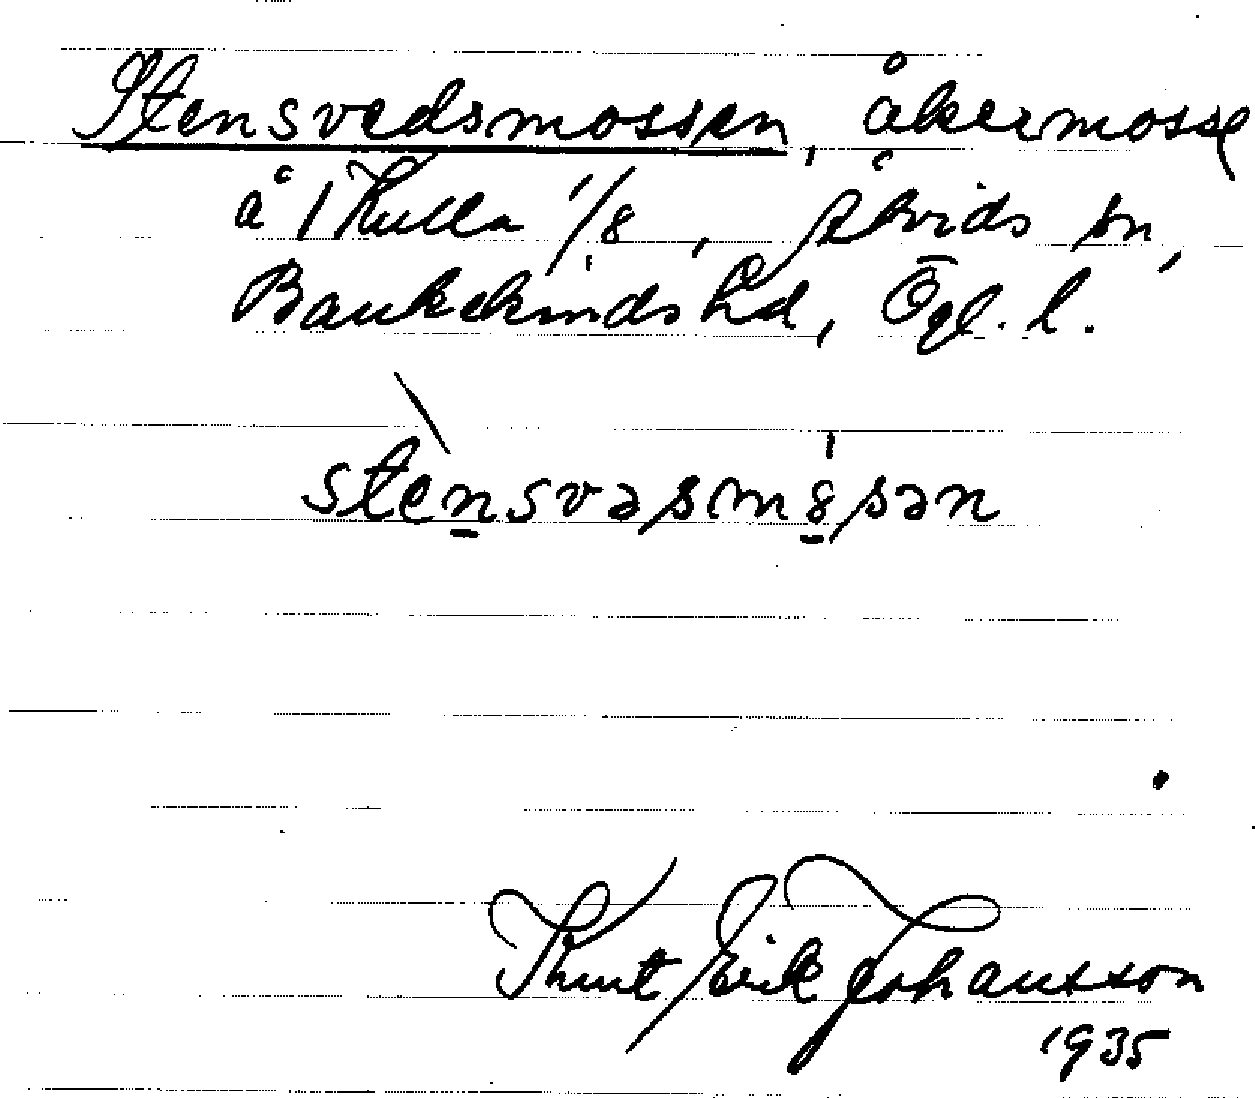 Stensvedsmossen, åkermosse
å 1 Kulla 1/8, Åtvids sn,
Bankekinds hd, Ögl. l.
stensvəsmȯsən
Knut Erik Johansson
1935